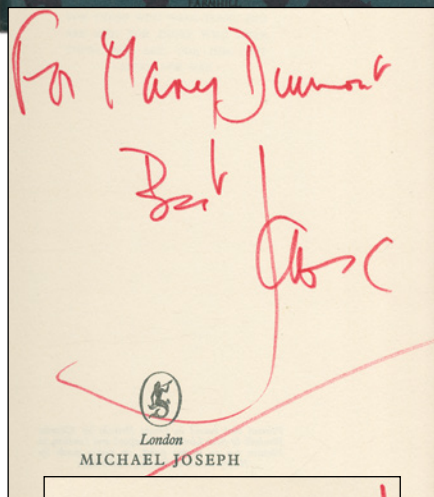 For Mary Dumont
Best
London
MICHAEL JOSEPH